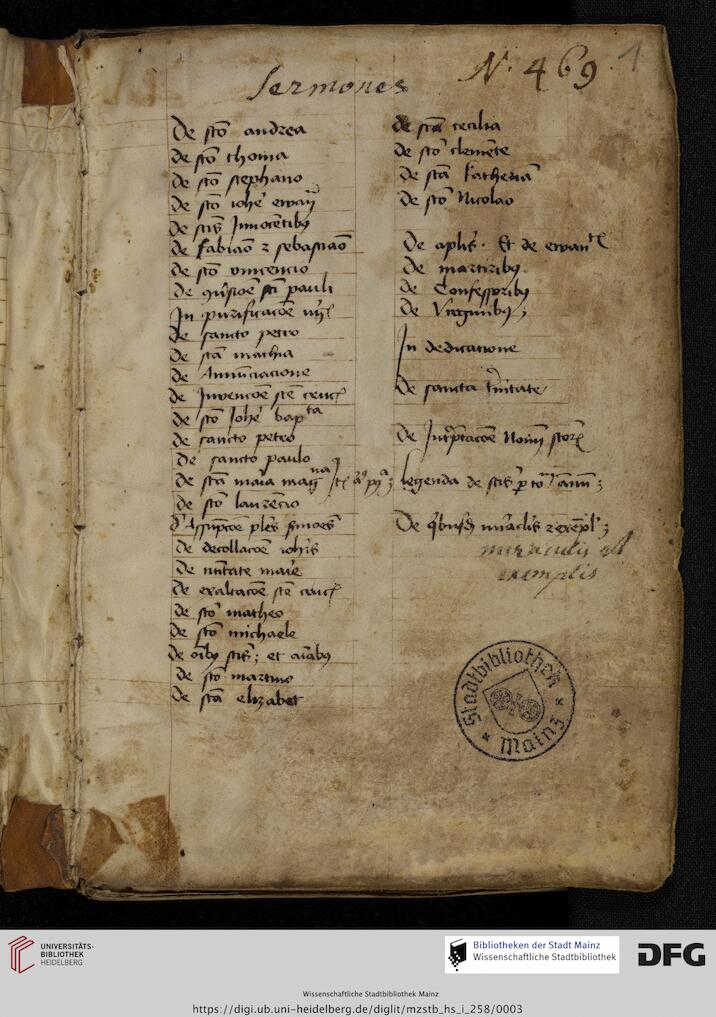 N. 469 1
Sermones
De sto andrea
De sto thoma
De sto stephano
De sto iohe ewan
De stis Innocetibus
De Fabiao z sebastiao
De sto vincencio
De 9uersioe sti pauli
In purificacoe
De sancto petro
De sta mathia
De Annunciacione
De Inuencoe ste cruc
De sto Iohe bapta
De sancto petro
De sancto paulo
De sta maia magna
De sto laurecio
d' Assupcoe ples smoes
De decollacoe iohis
De natitate maie
De exaltacoe ste cruc
De sto matheo
De sto michaele
De oibus stis; et aiabus
De sto martino
De sta elizabet
De sta cecilia
De sto clemete
De sta katheria
De sto Nicolao
De aplis. Et de ewan
De martiribus
De Confessoribus
De Virginibus;
In dedicacione
De sancta tinitate
De Intpretacoe Noium storum
legenda de stis p totum annum;
De quibusdam miraclis z exepl;
miraculis et
exemplis
Stadtbibliothek
* Mainz *
UNIVERSITÄTS-
BIBLIOTHEK
HEIDELBERG
Bibliotheken der Stadt Mainz
Wissenschaftliche Stadtbibliothek
DFG
Wissenschaftliche Stadtbibliothek Mainz
https://digi.ub.uni-heidelberg.de/diglit/mzstb_hs_i_258/0003